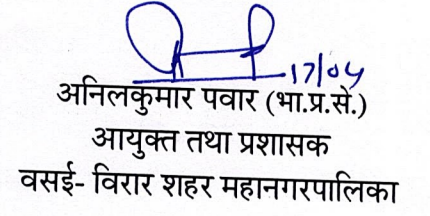 17/04
अनिलकुमार पवार (भा.प्र.से.)
आयुक्त तथा प्रशासक
वसई- विरार शहर महानगरपालिका